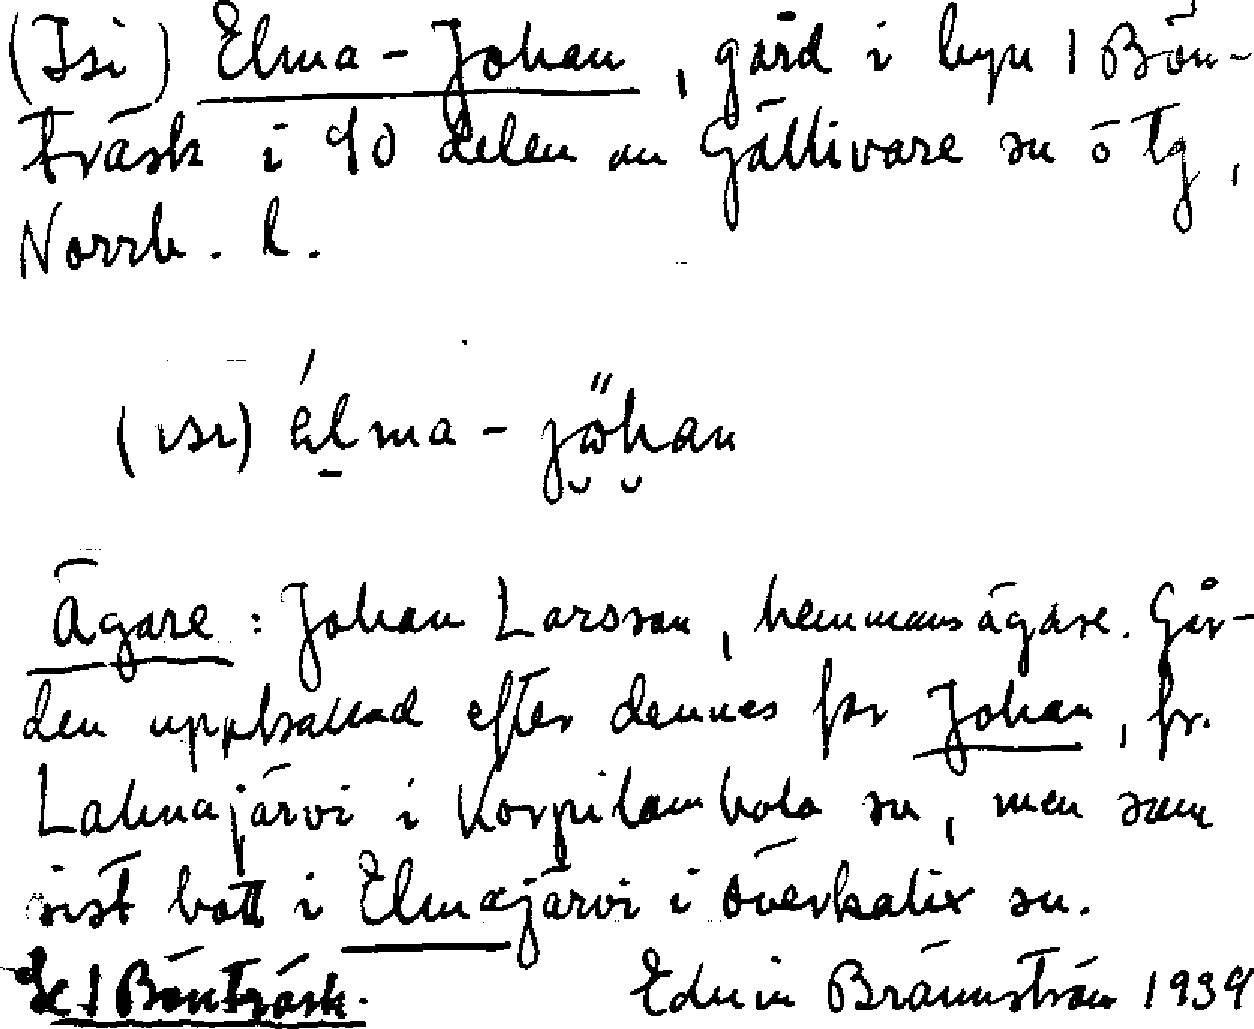 (Isi) Elma-Johan, gård i byn 1 Bön-
träsk i SO delen av Gällivare sn ö tg,
Norrb. l.
(ısı) élma-jöhan
Ägare: Johan Larsson, hemmansägare. Går-
den uppbrukad efter dennes far Johan, fr.
Lahnajärvi i Korpilombolo sn, men som
sist bott i Elmajärvi i överkalix sn.
1 Bönträsk.
Edvin Brännström 1939